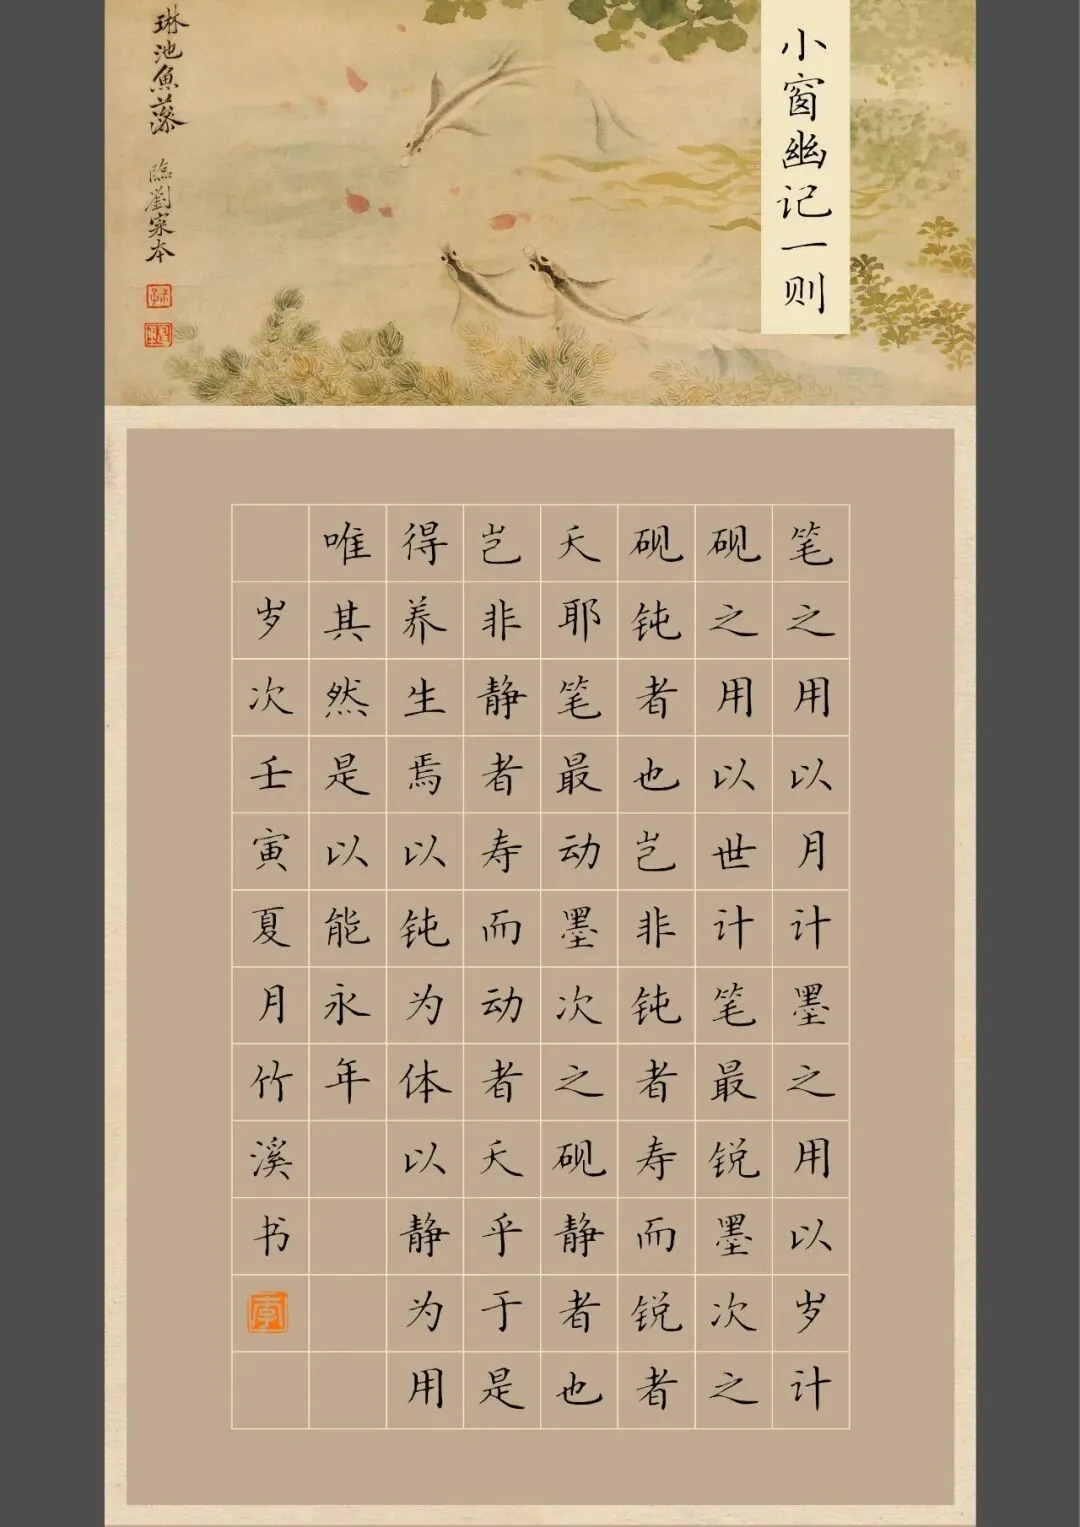 小窗幽记一则
琳池魚藻
臨劉寀本
笔之用以月计墨之用以岁计
砚之用以世计笔最锐墨次之
砚钝者也岂非钝者寿而锐者
夭耶笔最动墨次之砚静者也
岂非静者寿而动者夭乎于是
得养生焉以钝为体以静为用
唯其然是以能永年
岁次壬寅夏月竹溪书